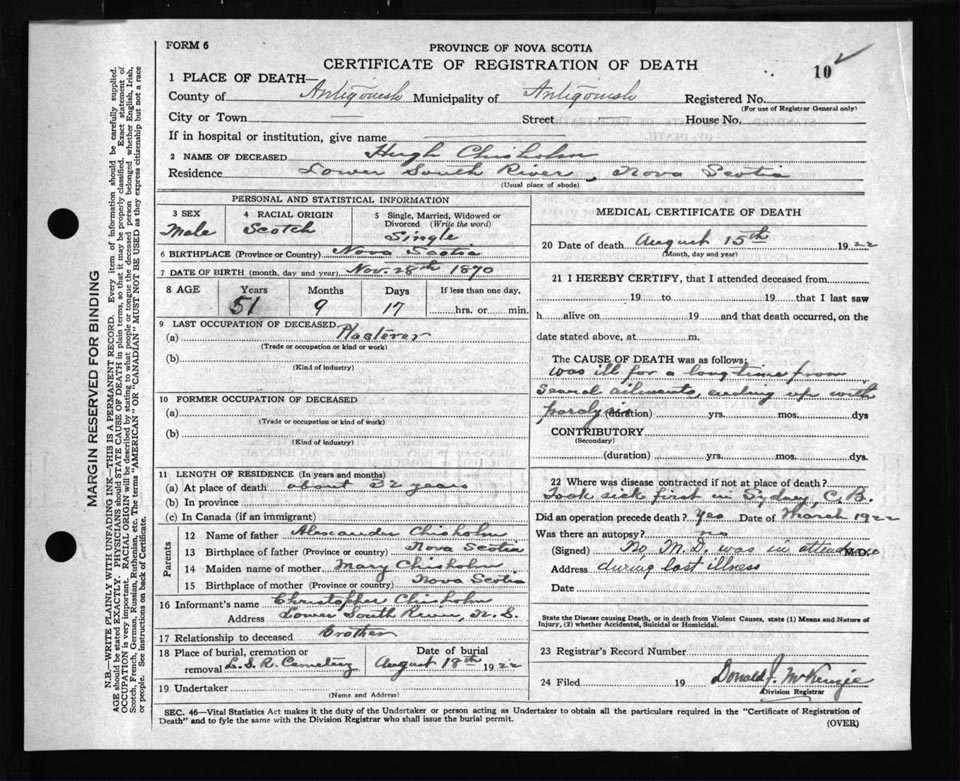 FORM 6
PROVINCE OF NOVA SCOTIA
CERTIFICATE OF REGISTRATION OF DEATH
10 ✓
1 PLACE OF DEATH—
County of Antigonish Municipality of Antigonish Registered No.
(For use of Registrar General only)
City or Town — Street — House No.
If in hospital or institution, give name
2 NAME OF DECEASED Hugh Chisholm
Residence Lower South River, Nova Scotia
(Usual place of abode)
PERSONAL AND STATISTICAL INFORMATION
3 SEX Male
4 RACIAL ORIGIN Scotch
5 Single, Married, Widowed or Divorced (Write the word) Single
6 BIRTHPLACE (Province or Country) Nova Scotia
7 DATE OF BIRTH (month, day and year) Nov. 28th 1870
8 AGE Years Months Days If less than one day,
51 9 17 hrs. or min.
9 LAST OCCUPATION OF DECEASED
(a) Plasterer
(Trade or occupation or kind or work)
(b)
(Kind of industry)
10 FORMER OCCUPATION OF DECEASED
(a)
(Trade or occupation or kind of work)
(b)
(Kind of industry)
11 LENGTH OF RESIDENCE (In years and months)
(a) At place of death about 32 years
(b) In province
(c) In Canada (if an immigrant)
Parents
12 Name of father Alexander Chisholm
13 Birthplace of father (Province or country) Nova Scotia
14 Maiden name of mother Mary Chisholm
15 Birthplace of mother (Province or country) Nova Scotia
16 Informant's name Christopher Chisholm
Address Lower South River, N.S.
17 Relationship to deceased Brother
18 Place of burial, cremation or removal L.S.R. Cemetery
Date of burial August 18th 1922
19 Undertaker
(Name and Address)
MEDICAL CERTIFICATE OF DEATH
20 Date of death August 15th 1922
(Month, day and year)
21 I HEREBY CERTIFY, that I attended deceased from
19 to 19 that I last saw
h alive on 19 and that death occurred, on the
date stated above, at m.
The CAUSE OF DEATH was as follows:
was ill for a long time from
several ailments, ending up with
paralysis (duration) yrs. mos. dys
CONTRIBUTORY
(Secondary)
(duration) yrs. mos. dys.
22 Where was disease contracted if not at place of death?
Took sick first in Sydney, C.B.
Did an operation precede death? Yes Date of March 1922
Was there an autopsy? no
(Signed) No M.D. was in attendance M.D.
Address during last illness
Date
State the Disease causing Death, or in death from Violent Causes, state (1) Means and Nature of
Injury, (2) whether Accidental, Suicidal or Homicidal.
23 Registrar's Record Number
24 Filed 19 Donald J. McKenzie
Division Registrar
SEC. 46—Vital Statistics Act makes it the duty of the Undertaker or person acting as Undertaker to obtain all the particulars required in the "Certificate of Registration of
Death" and to fyle the same with the Division Registrar who shall issue the burial permit.
(OVER)
MARGIN RESERVED FOR BINDING
N.B.—WRITE PLAINLY WITH UNFADING INK—THIS IS A PERMANENT RECORD. Every item of information should be carefully supplied.
AGE should be stated EXACTLY. PHYSICIANS should STATE CAUSE OF DEATH in plain terms, so that it may be properly classified. Exact statement of
OCCUPATION is very important. RACIAL ORIGIN will be described by stating to what people or tongue the deceased person belonged whether English, Irish,
Scotch, French, German, Russian, Ruthenian, etc. The terms "AMERICAN" OR "CANADIAN" MUST NOT BE USED as they express citizenship but not a race
or people. See instructions on back of Certificate.